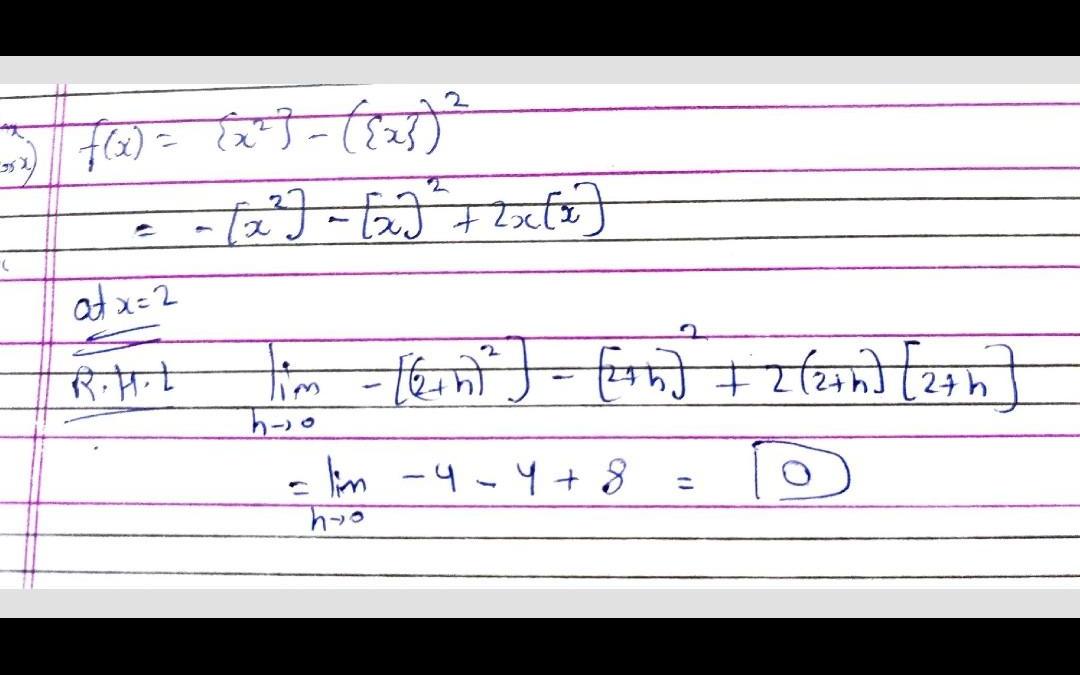 f(x) = {x²} - ({x})²
= -[x²] - [x]² + 2x[x]
at x=2
R.H.L lim h→0 -[(2+h)²] - [2+h]² + 2(2+h)[2+h]
= lim h→0 -4 - 4 + 8 = 0